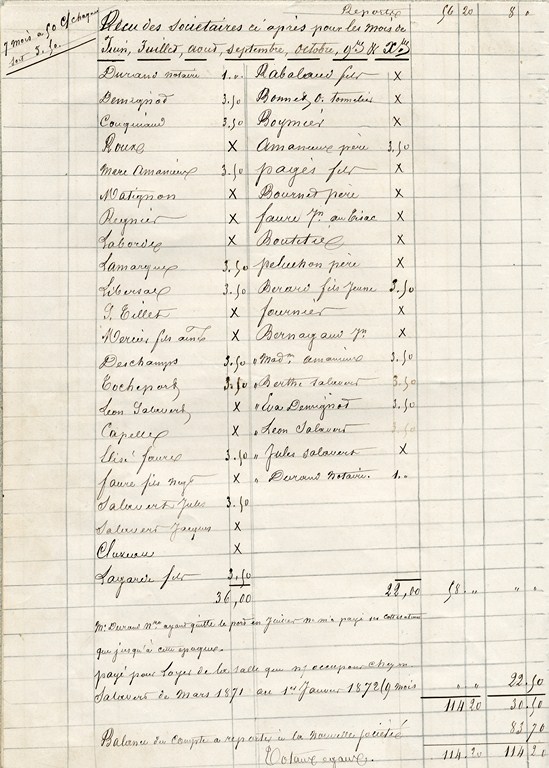 Report 56 20 8 "
7 mois à 50 c/ chaque
soit 3.50
Reçu des Sociétaires ci après pour les mois de
Juin, Juillet, aout, septembre, octobre, 9bre & Xbre
Durand notaire 1.. Rabalaud fils X
Demignot 3.50 Bonnet, O. tonnelier X
Couquiaud 3.50 Boymier X
Roux X Amanieux père 3.50
Marc Amanieux 3.50 pagès fils X
Matignon X Bournet père X
Reynier X faure Jne au Cisac X
Laborde X Boutetié X
Lamarque 3.50 peluchon père X
Libersac 3.50 Berard fils Jeune 3.50
G. Tillet X fournier X
Mercier fils ainé X Bernagaud Jne X
Deschamps 3.50 " Madme amanieux 3.50
Rocheport 3.50 " Berthe salavert 3.50
Leon Salavert X " Eva Demignot 3.50
Capelle X " Leon Salavert 3.50
Elisé faure 3.50 " Jules salavert X
faure fils X " Durand Notaire. 1..
Salavert Jules 3.50
Salavert Jacques X
Cluzeau X
Lagarde fils 3.50
36,00 22,00 58 " " "
Mr Durand Nre ayant quitté le port en Janvier n'a payé sa cotisation
que jusqu'à cette époque.
payé pour loyer de la salle que ns occupons chez M
Salavert de Mars 1871 au 1er Janvier 1872 (9 mois " " 22.50
114 20 30.50
Balance du Compte a reporter à la Nouvelle Société 83.70
Totaux égaux. 114.20 114.20